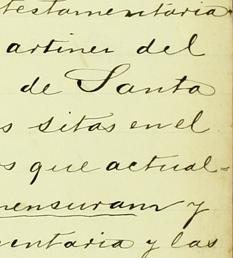 testamentaria
artinez del
de Santa
s sitas en el
os que actual=
mensuram y
entaria y las